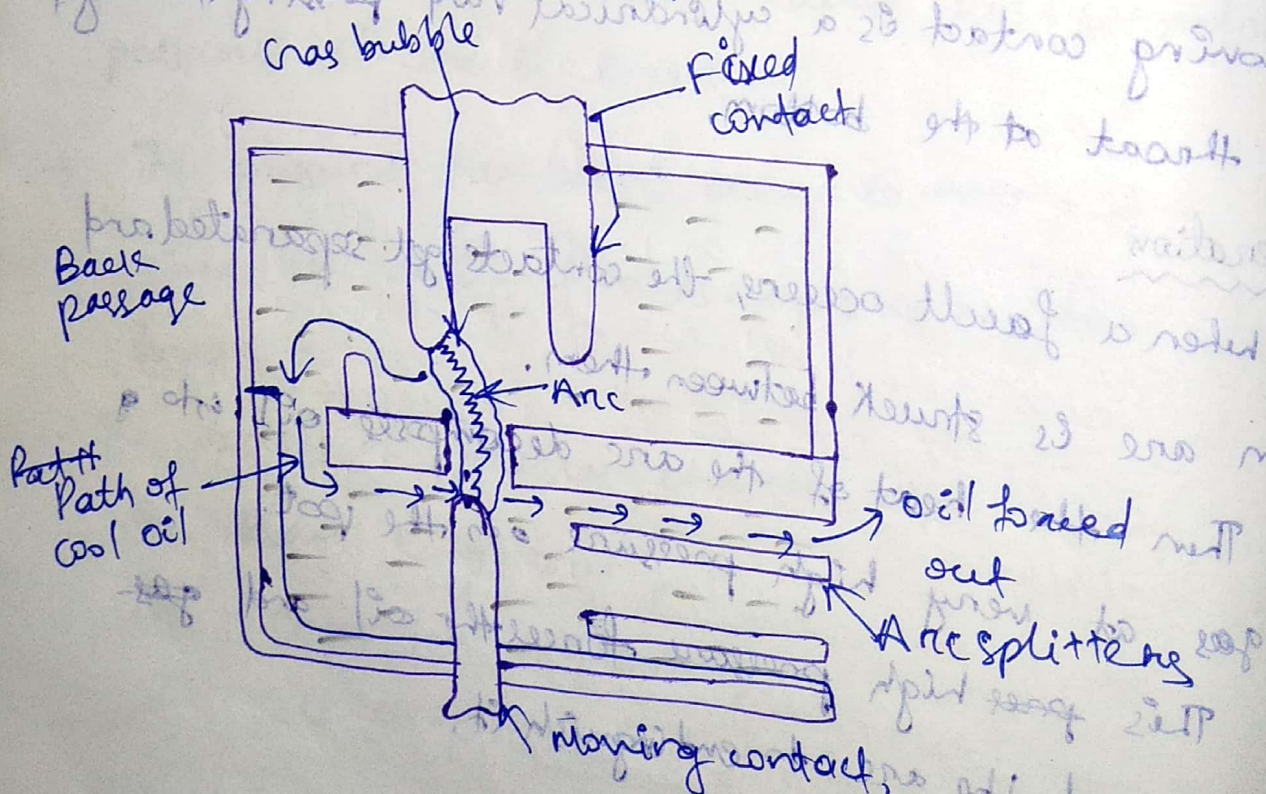 Gas bubble
Fixed
contact
Back
passage
Arc
Path of
cool oil
oil forced
out
Arc splitters
Moving contact